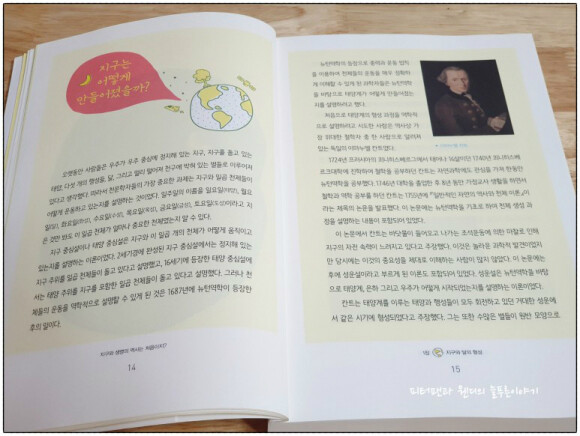 지구는
어떻게
만들어졌을까?
오랫동안 사람들은 우주가 우주 중심에 정지해 있는 지구, 지구를 돌고 있는
태양, 다섯 개의 행성들, 달, 그리고 멀리 떨어져 천구에 박혀 있는 별들로 이루어져
있다고 생각했다. 따라서 천문학자들의 가장 중요한 과제는 지구와 일곱 천체들이
어떻게 운동하고 있는지를 설명하는 것이었다. 일주일의 이름을 일요일(日曜日), 월요
일(月), 화요일(火), 수요일(水), 목요일(木), 금요일(金), 토요일(土)이라고 지
은 것만 봐도 이 일곱 천체가 얼마나 중요한 천체였는지 알 수 있다.
지구 중심설이나 태양 중심설은 지구와 이 일곱 개의 천체가 어떻게 움직이고
있는지를 설명하는 이론이었다. 2세기경에 완성된 지구 중심설에서는 정지해 있는
지구 주위를 일곱 천체들이 돌고 있다고 설명했고, 16세기에 등장한 태양 중심설에
서는 태양 주위를 지구를 포함한 일곱 천체들이 돌고 있다고 설명했다. 그러나 천
체들의 운동을 역학적으로 설명할 수 있게 된 것은 1687년에 뉴턴역학이 등장한
후의 일이다.
지구와 생명의 역사는 처음이지?
14
뉴턴역학의 등장으로 중력과 운동 법칙
을 이용하여 천체들의 운동을 매우 정확하
게 이해할 수 있게 된 과학자들은 뉴턴역학
을 바탕으로 태양계가 어떻게 만들어졌는
지를 설명하려고 했다.
처음으로 태양계의 형성 과정을 역학적
으로 설명하려고 시도한 사람은 역사상 가
장 위대한 철학자 중 한 사람으로 알려져
있는 독일의 이마누엘 칸트였다.
1724년 프러시아의 쾨니히스베르크에서 태어나 16살이던 1740년 쾨니히스베
르크대학에 진학하여 철학을 공부하던 칸트는 자연과학에도 관심을 가져 한동안
뉴턴역학을 공부했다. 1746년 대학을 졸업한 후 8년 동안 가정교사 생활을 하면서
철학과 역학 공부를 하던 칸트는 1755년에 『일반적인 자연의 역사와 천체 이론』이
라는 제목의 논문을 발표했다. 이 논문에는 뉴턴역학을 기초로 하여 천체 생성 과
정을 설명하는 내용이 포함되어 있었다.
이 논문에서 칸트는 바닷물이 들어오고 나가는 조석운동에 의한 마찰로 인해
지구의 자전 속력이 느려지고 있다고 주장했다. 이것은 놀라운 과학적 발견이었지
만 당시에는 이것의 중요성을 제대로 이해하는 사람이 많지 않았다. 이 논문에는
후에 성운설이라고 부르게 된 이론도 포함되어 있었다. 성운설은 뉴턴역학을 바탕
으로 태양계, 은하 그리고 우주가 어떻게 시작되었는지를 설명하는 이론이었다.
칸트는 태양계를 이루는 태양과 행성들이 모두 회전하고 있던 거대한 성운에
서 같은 시기에 형성되었다고 주장했다. 그는 또한 수많은 별들이 원반 모양으로
1장 지구와 달의 형성
15
피터팬과 웬디의 물푸른이야기